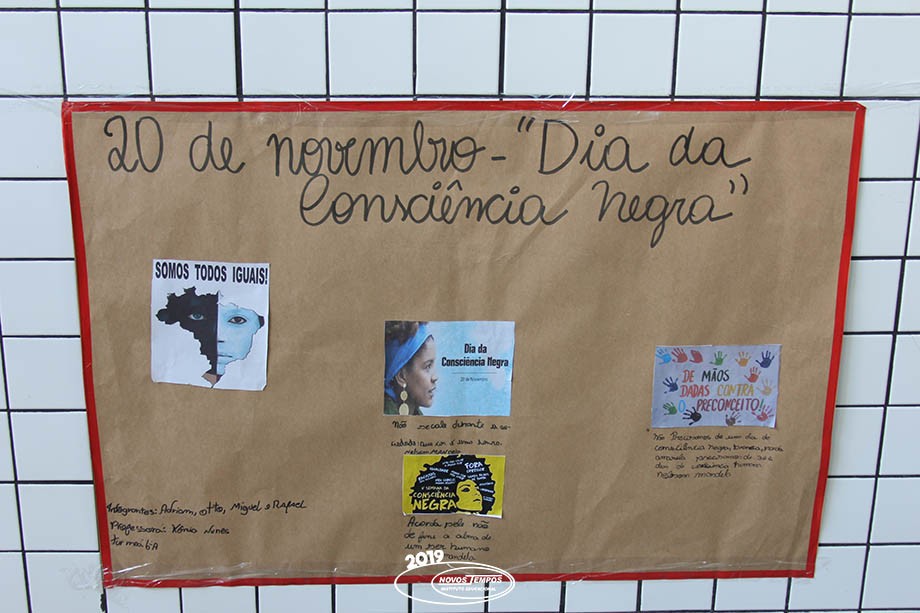 20 de novembro - "Dia da
Consciência Negra"
SOMOS TODOS IGUAIS!
Dia da
Consciência Negra
20 de Novembro
DE MÃOS
DADAS CONTRA
O PRECONCEITO!
Não se cale durante a so
Não Precisamos de um dia de
consciência Negra, branca, parda
amarela precisamos de 365
dias de consciência humana
FORA
CONSCIÊNCIA
NEGRA
Acorda pele não
de fine a alma de
um ser humano
Integrantes: Adriam, otto, Miguel e Rafael
Professora: Kênia Nunes
turma: 6ºA
2019
NOVOS TEMPOS
INSTITUTO EDUCACIONAL